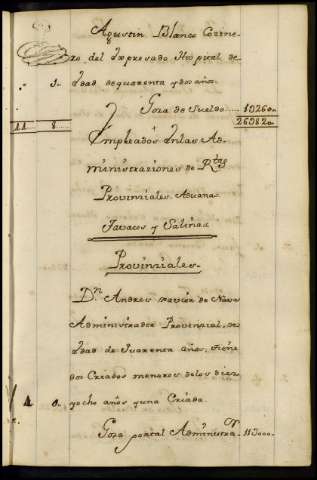 Agustin Blanco Cozine
ro del expresado Hospital de
1. edad de quarenta y dos años.
Goza de Sueldo.... 1026„
11 8. 26982„
Empleados en las Ad
ministraciones de Rtas
Provinziales, Aduana
Tavacos y Salinas
Provinziales.
Dn. Andres Xavier de Nava
Administrador Provinzial, de
edad de quarenta años, tiene
dos Criados menores de los diez
1 0. y ocho años y una Criada.
Goza por tal Administrn. 11000„